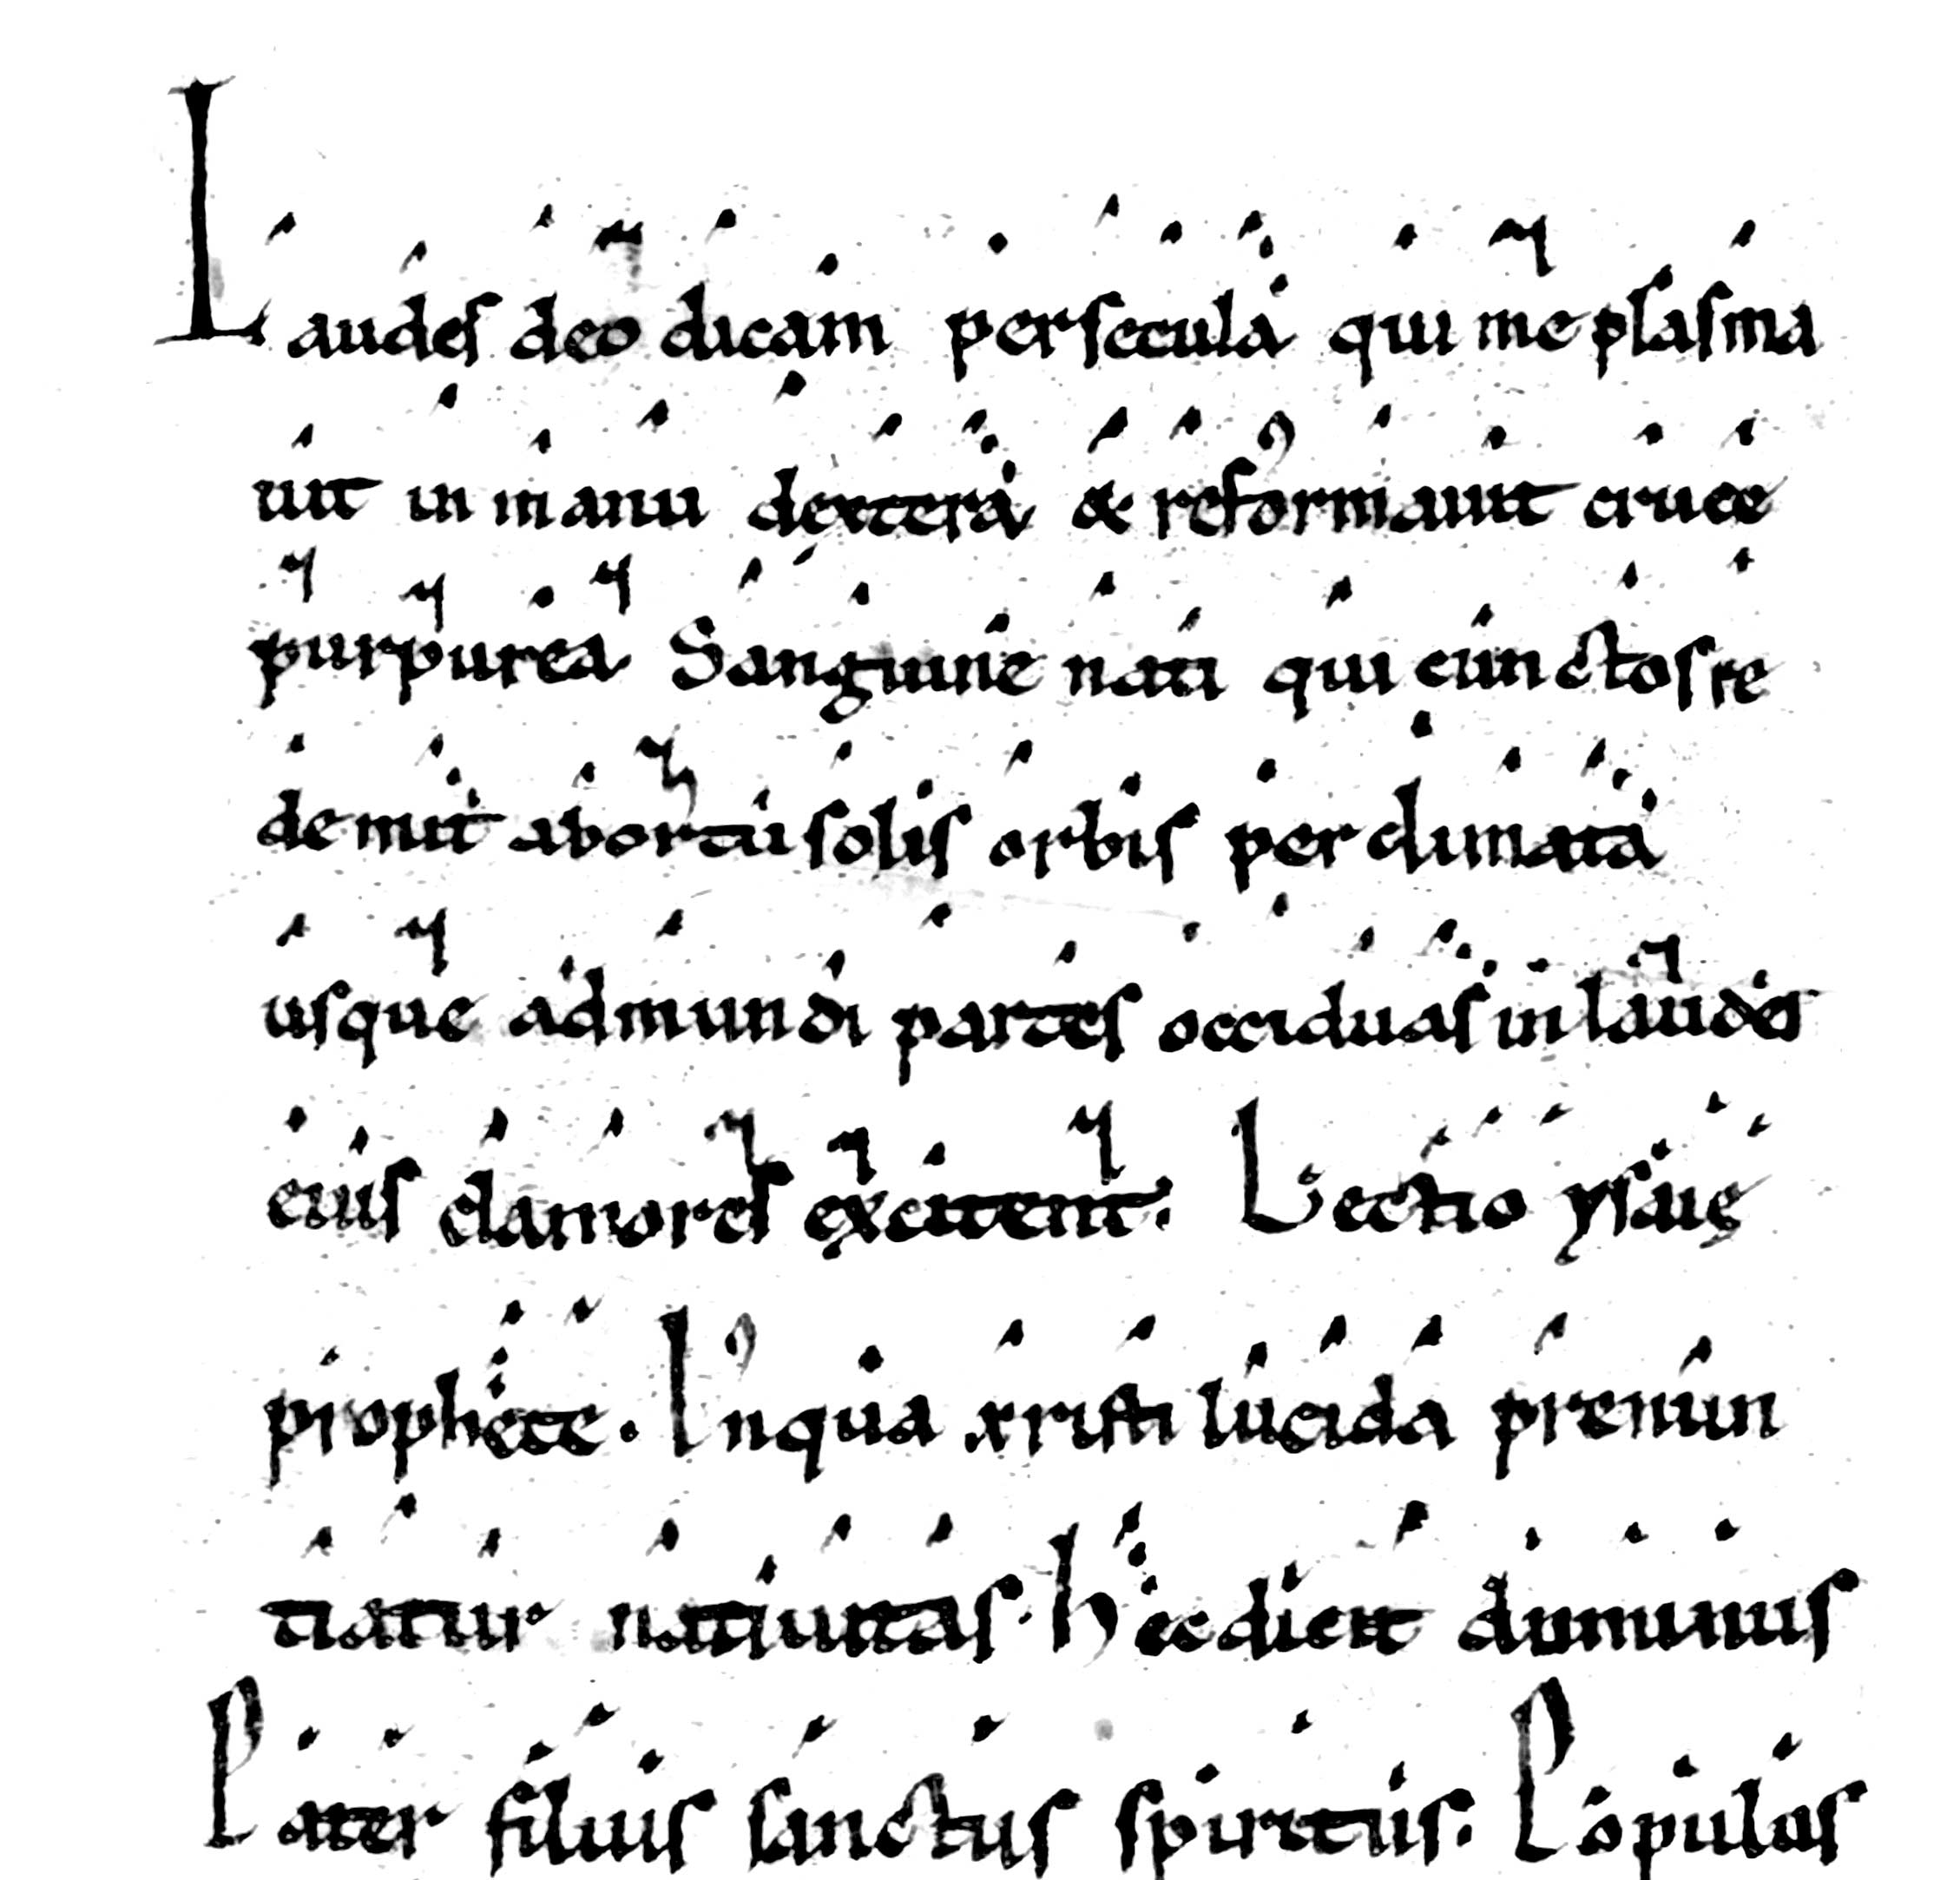 Laudes deo dicam per secula qui me plasma
uit in manu dextera & reformauit cruce
purpurea Sanguine nati qui cunctos re
demit ab ortu solis orbis per climata
usque ad mundi partes occiduas in laudes
eius clamores excitent. Lectio ysaię
prophete. In qua xristi lucida prenun
tiatur natiuitas. hec dicit dominus
Pater filius sanctus spiritus. Populus